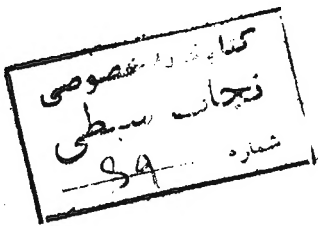 کتابخانه خصوصی
نجات سبطی
شماره 89